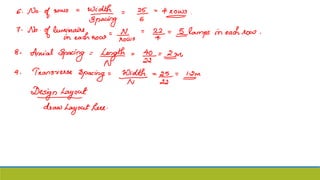 6. No. of rows = Width / Spacing = 25 / 6 = 4 rows
7. No. of luminaires in each row = N / rows = 22 / 4 = 5 lamps in each row.
8. Axial Spacing = Length / N = 40 / 22 = 2m
9. Transverse Spacing = Width / N = 25 / 22 = 1.2m
Design Layout
draw layout here.